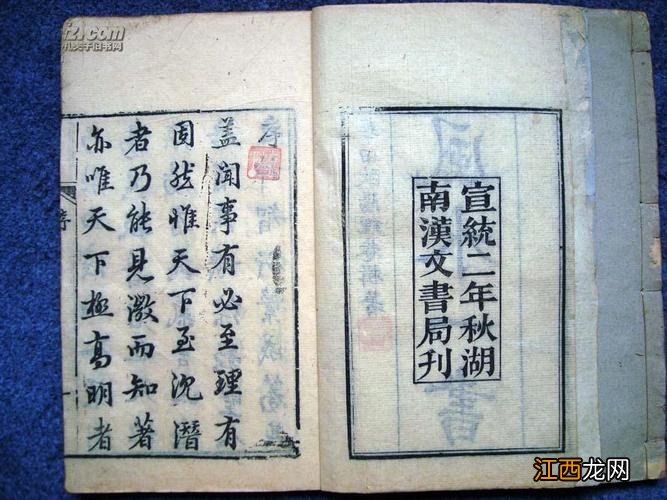 宣統二年秋湖
南漢文書局刊
序
蓋聞事有必至理有
固然惟天下至沈潛
者乃能見微而知著
亦唯天下極高明者
序
一
江西龙网